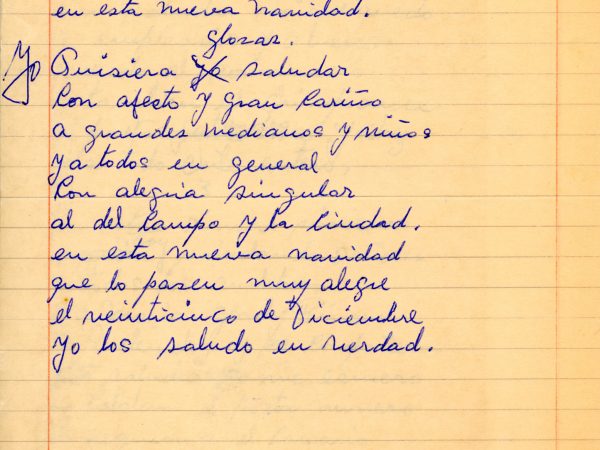 en esta nueva navidad.
glozar.
Yo Quisiera yo saludar
Con afesto y gran Cariño
a grandes medianos y niños
y a todos en general
Con alegria singular
al del Campo y la Ciudad.
en esta nueva navidad
que lo pasen muy alegre
el veinticinco de Diciembre
Yo los saludo en verdad.